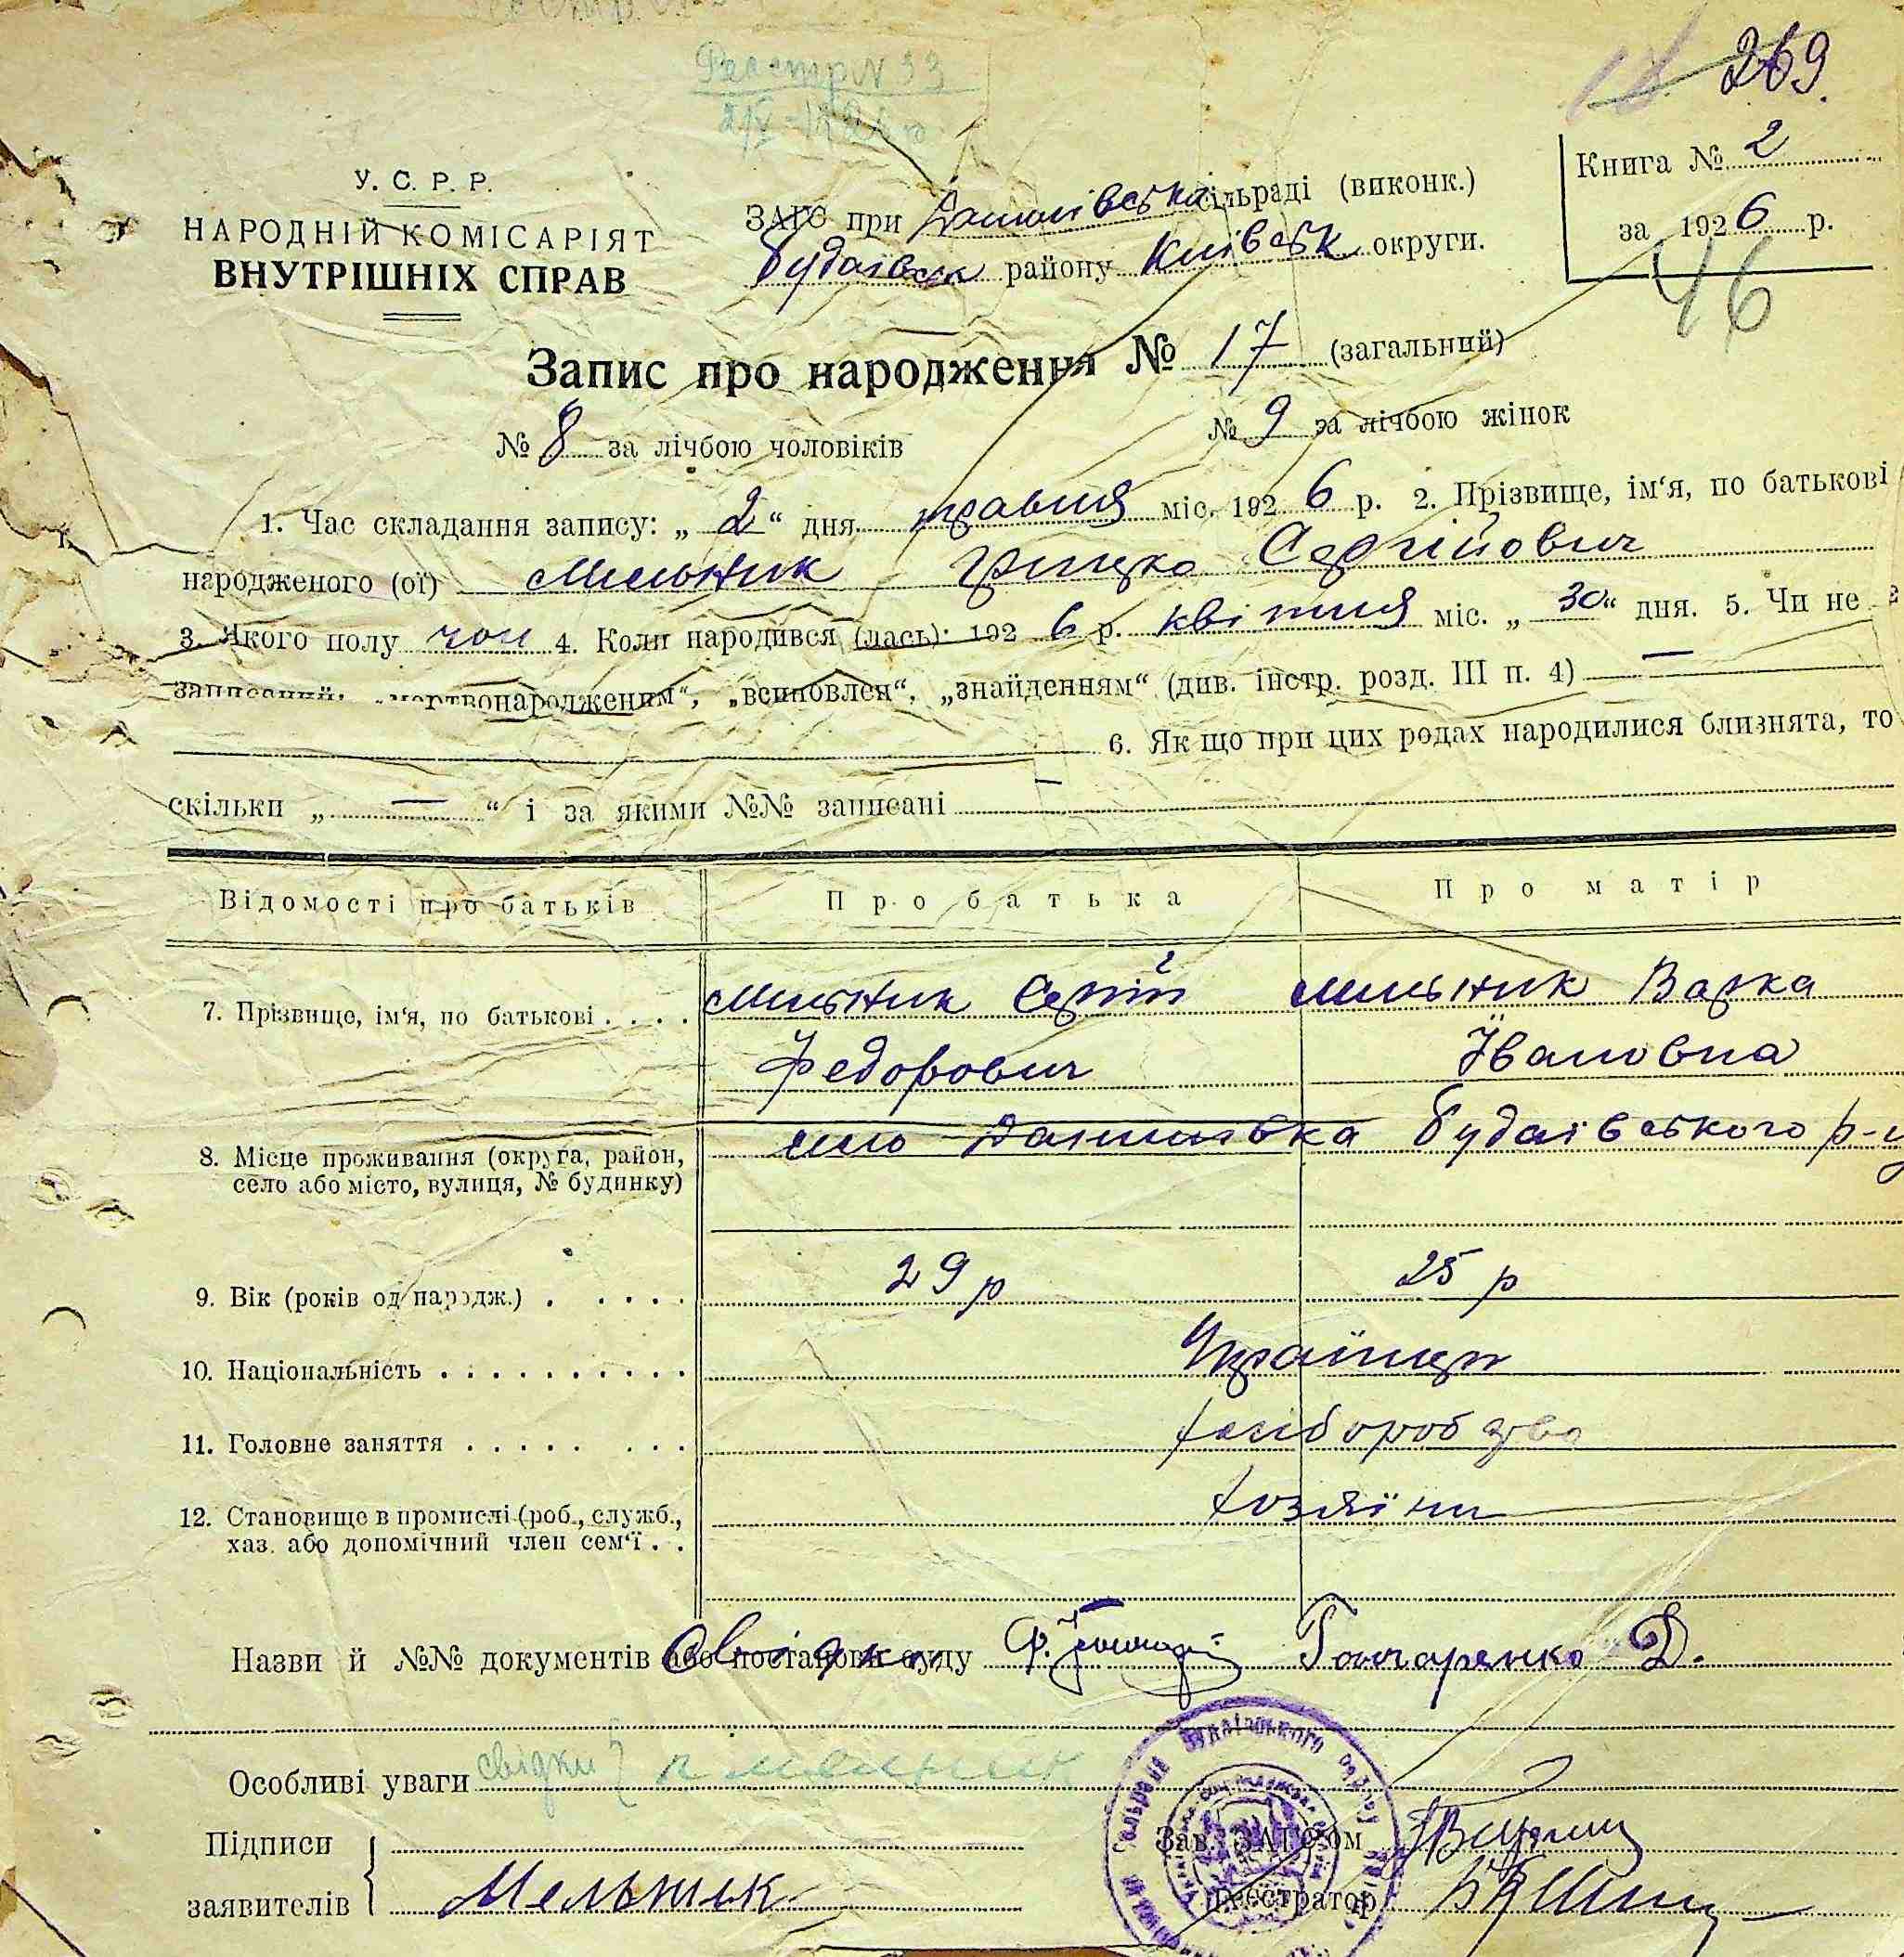 Реєстр N 33
269.
Книга № 2
за 1926 р.
46
У. С. Р. Р.
НАРОДНІЙ КОМІСАРІЯТ
ВНУТРІШНІХ СПРАВ
ЗАГС при сільраді (виконк.)
Будаївськ району Київськ округи.
Запис про народження № 17 (загальний)
№ 8 за лічбою чоловіків № 9 за лічбою жінок
1. Час складання запису: „ 2 “ дня травня міс. 1926 р. 2. Прізвище, ім‘я, по батькові
народженого (ої) Мельник Грицко Сергійович
3. Якого полу чол 4. Коли народився (лась): 1926 р. квітня міс. „ 30 “ дня. 5. Чи не
записаний: „мертвонародженим“, „всиновлен“, „знайденням“ (див. інстр. розд. III п. 4) —
6. Як що при цих родах народилися близнята, то
скільки „ — “ і за якими №№ записані —
Відомості про батьків Про батька Про матір
7. Прізвище, ім‘я, по батькові . . . . Мельник Сергій Мельник Варка
Федорович Івановна
8. Місце проживання (округа, район, село Данилівка Будаївського р-у
село або місто, вулиця, № будинку)
9. Вік (років од народж.) . . . . . 29 р 25 р
10. Національність . . . . . . . . . . Українци
11. Головне заняття . . . . . . . . хліборобство
12. Становище в промислі (роб., служб., хозяїни
хаз. або допомічний член сем‘ї . .
Назви й №№ документів або постанови суду Свідки Гончаренко Д.
Особливі уваги свідки
Підписи Зав. ЗАГС‘ом
заявителів Мельник Реєстратор